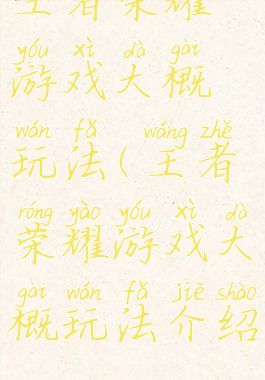 王者荣耀
yóu xì dà gài
游戏大概
wán fǎ wáng zhě
玩法(王者
róng yào yóu xì dà
荣耀游戏大
gài wán fǎ jiè shào
概玩法介绍